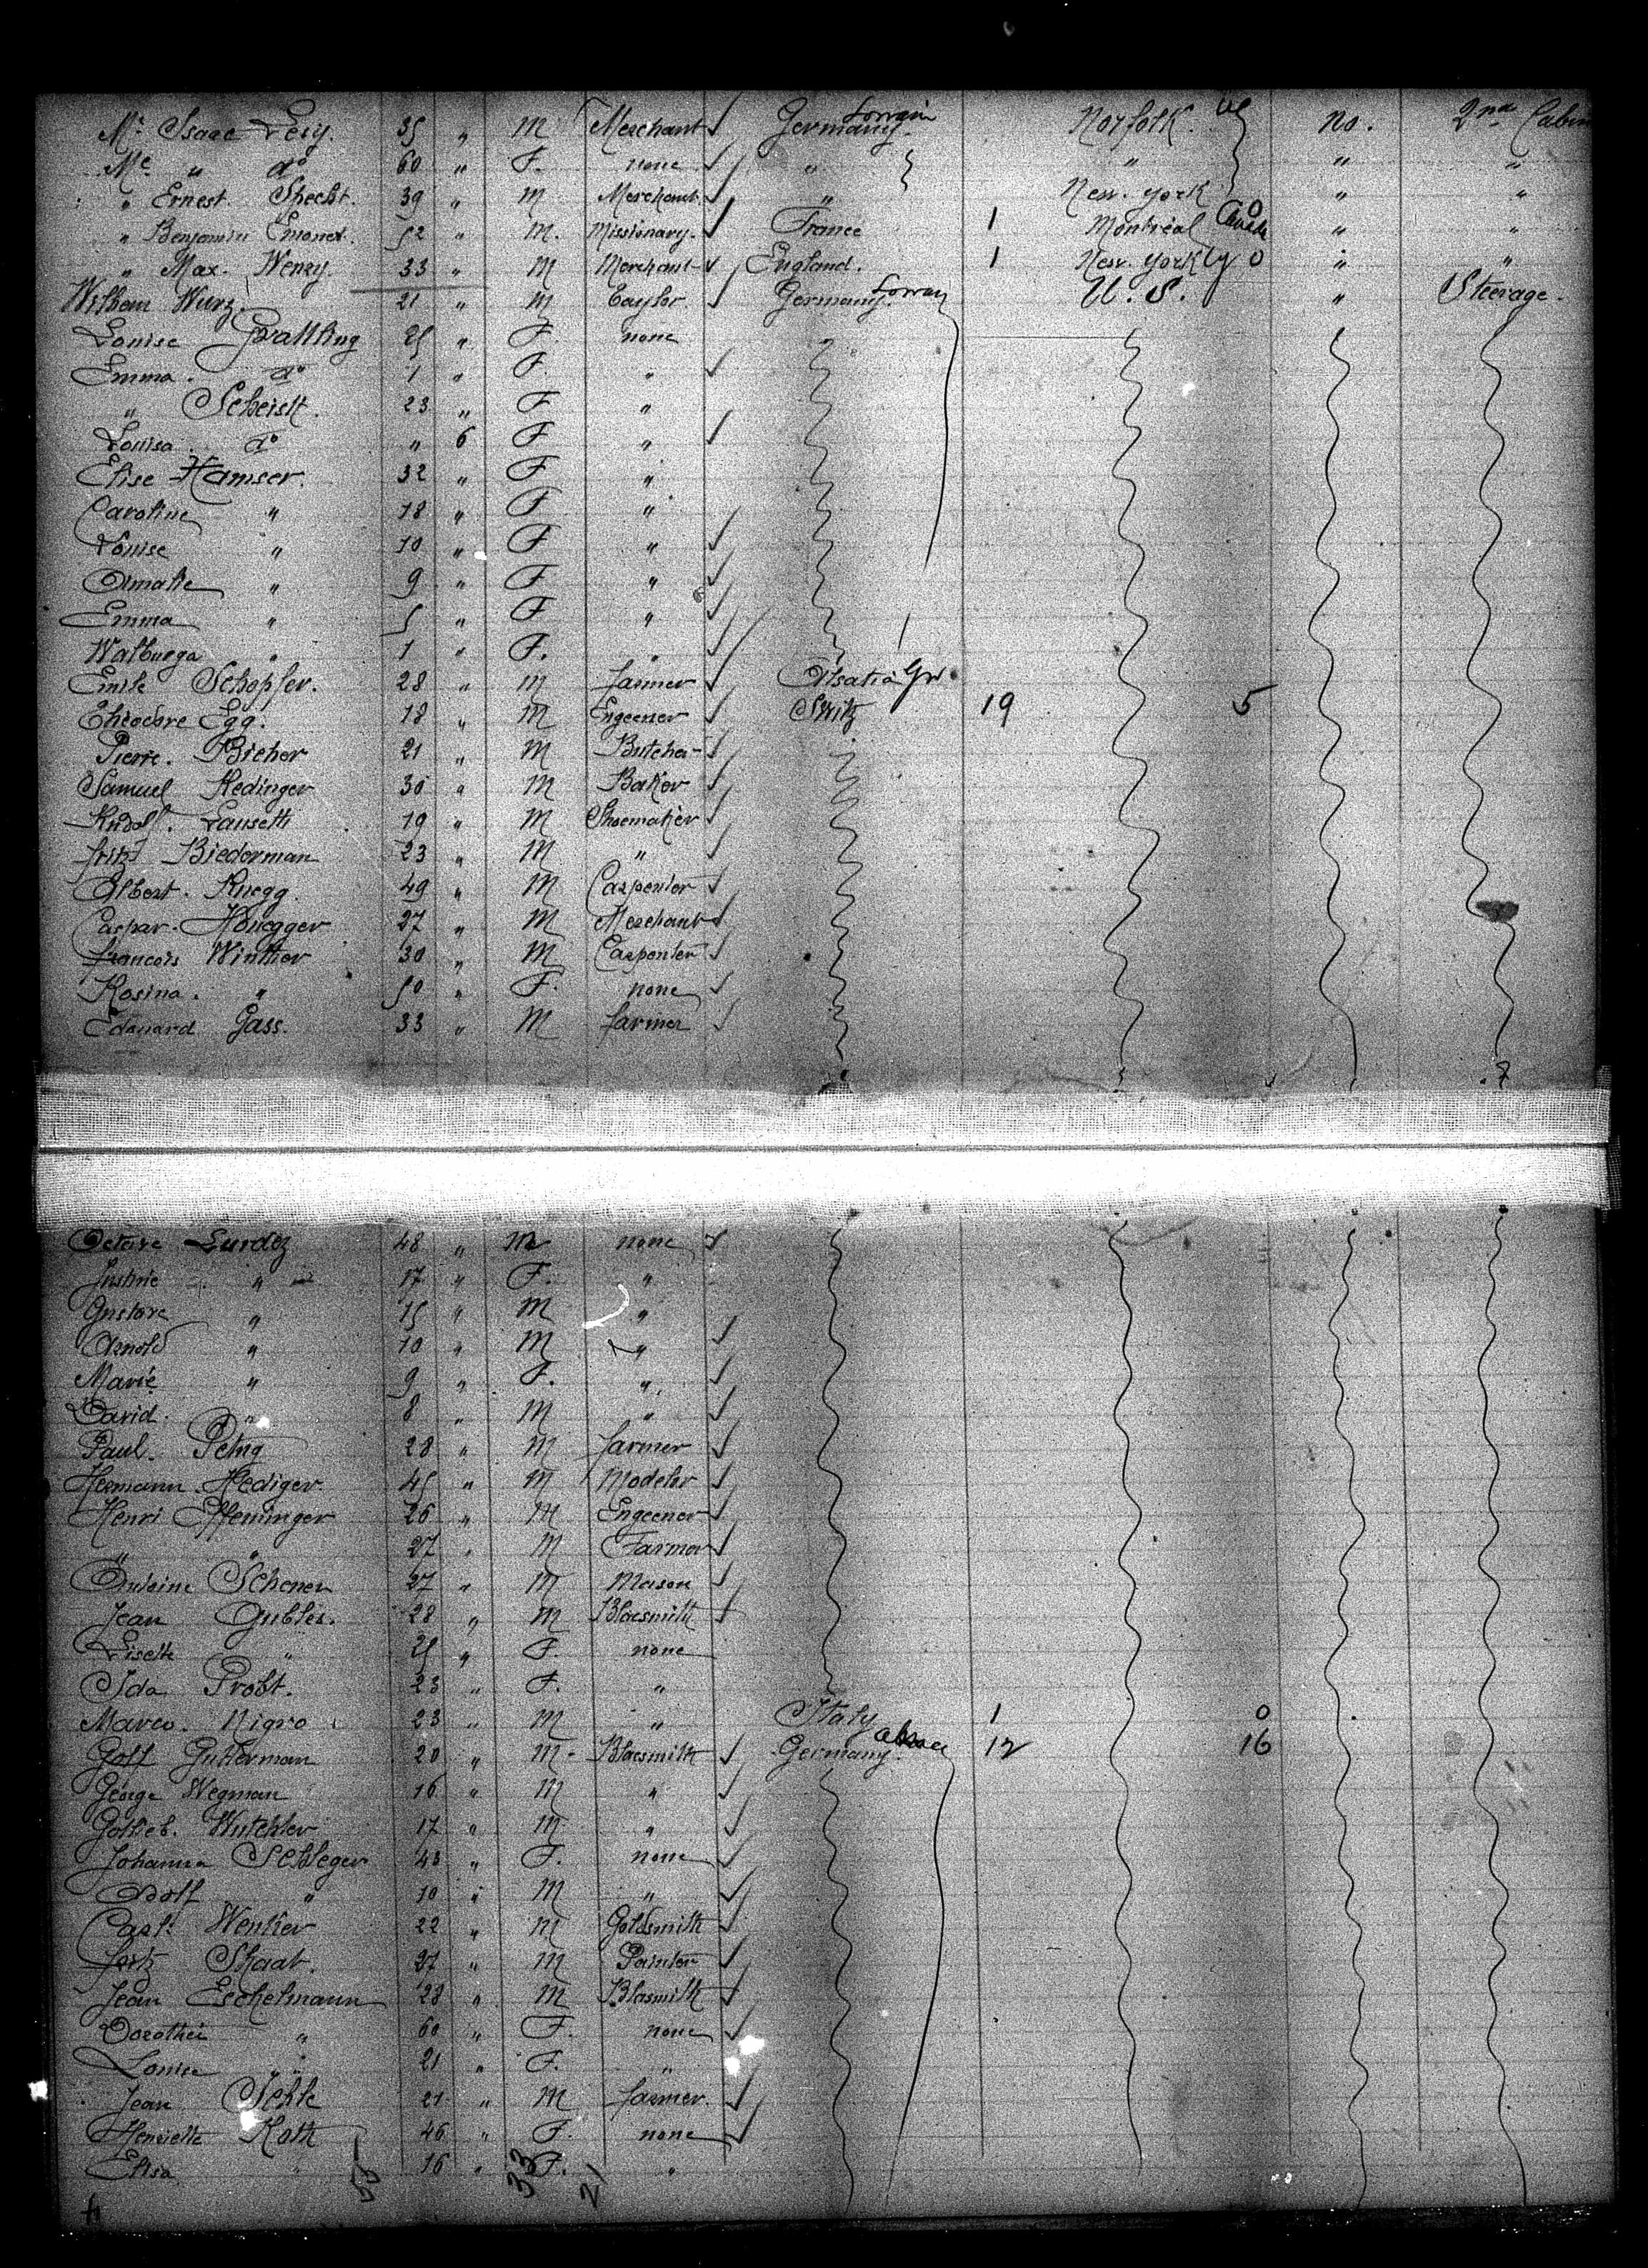 Mr. Isaac Levy. 35 " M Merchant Germany. Lorrain Norfolk. no. 2nd Cabin
Me " do 60 " F. none " " " "
" Ernest. Specht. 39 " M Merchant. " New. York " "
" Benjamin Emonet. 52 " M. Missionary. France 1 Montréal " "
" Max. Wenzy. 33 " M Merchant England. 1 New. York 0 " "
Wilhem Wurz. 21 " M Taylor Germany. U. S. " Steerage.
Louise 25 " F. none
Emma. do 1 " F. "
" 23 " F "
Louisa. do " 6 F "
Elise Hamser. 32 " F "
Caroline " 18 " F "
Louise " 10 " F "
Amalie " 9 " F "
Emma " 5 " F "
Walburga " 1 " F. "
Emile Schopfer. 28 " M farmer Alsatia Gr
Theodore Egg. 18 " M Engeener Switz 19 5
Pierre. Bicher 21 " M Butcher
Samuel Hedinger 30 " M Baker
Rudolf. 19 " M Shoemaker
fritz Biederman 23 " M "
Albert. Ruegg. 49 " M Carpenter
Caspar. Honegger 27 " M Merchant
francois Winther 30 " M Carpenter
Rosina. " 50 " F. none
Edouard Gass. 33 " M farmer
Octave Lurdez 48 " M none
Justine " 17 " F. "
Gustave " 15 " M "
Arnold " 10 " M "
Marie " 9 " F. "
David. " 8 " M "
Paul. 28 " M farmer
Hermann. Hediger. 45 " M Modeler
Henri Effeninger 26 " M Engeener
" " 27 " M Farmer
Antoine Schener 27 " M Mason
Jean Gubler. 28 " M Blacsmith
Lisette " 25 " F. none
Ida Probst. 23 " F. "
Marco. Nigro 23 " M " Italy 1 0
Golf Gutterman 20 " M Blacsmith Germany. 12 16
George Wegman 16 " M "
Gottlieb. 17 " M "
Johanna Schleger 43 " F. none
Adolf " 10 " M "
Carl. Wenker 22 " M Goldsmith
fritz Shaab. 27 " M Painter
Jean Eschelmann 28 " M Blasmith
Dorothei " 60 " F. none
Louise " 21 " F. "
Jean 21 " M farmer.
Henriette Roth 46 " F. none
Elisa " 16 " F. "
55 33 21